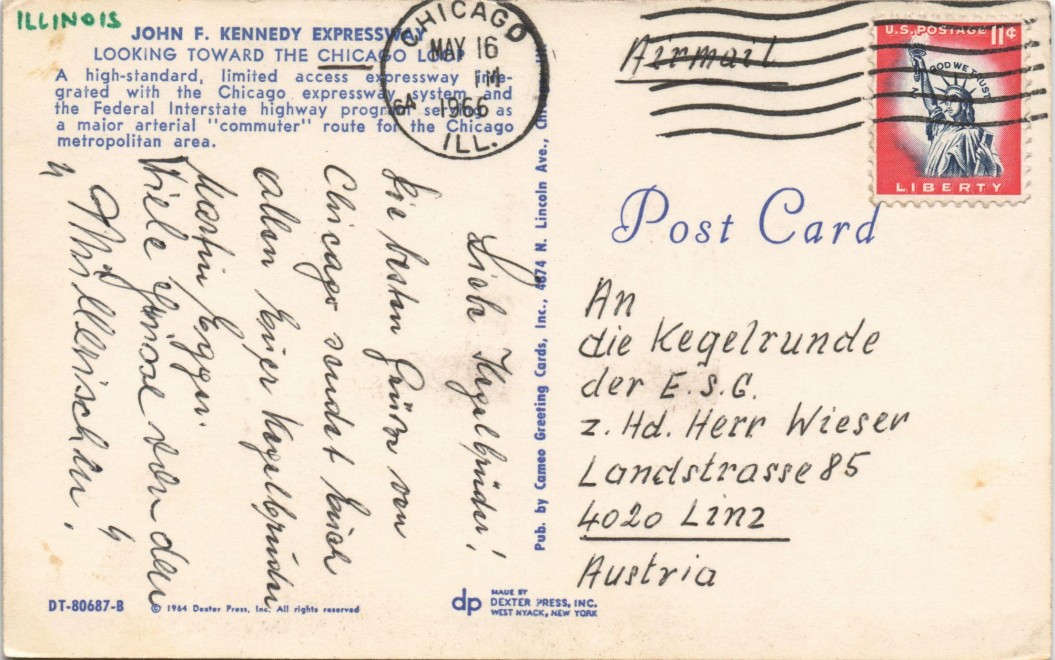 ILLINOIS
JOHN F. KENNEDY EXPRESSWAY
LOOKING TOWARD THE CHICAGO LOOP
A high-standard, limited access expressway inte-
grated with the Chicago expressway system and
the Federal Interstate highway program serving as
a major arterial "commuter" route for the Chicago
metropolitan area.
CHICAGO
MAY 16
PM
6A 1966
ILL.
Airmail
U.S. POSTAGE 11¢
IN GOD WE TRUST
LIBERTY
Liebe Kegelbrüder!
Die besten Grüße von
Chicago sendet Euch
allen Euer Kegelbruder
Martin Egger.
Viele Grüsse von den
Pub. by Cameo Greeting Cards, Inc., 4874 N. Lincoln Ave.,
Post Card
An
die Kegelrunde
der E.S.G.
z. Hd. Herr Wieser
Landstrasse 85
4020 Linz
Austria
DT-80687-B
© 1964 Dexter Press, Inc. All rights reserved
dp
MADE BY
DEXTER PRESS, INC.
WEST NYACK, NEW YORK